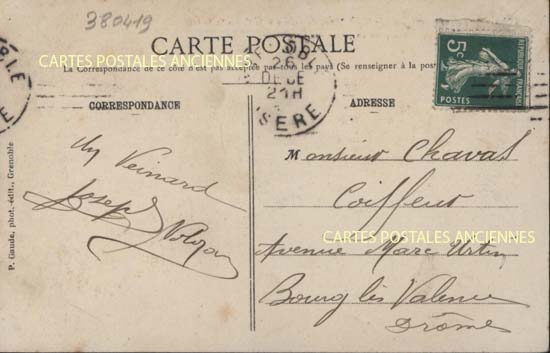 380419
CARTE POSTALE
La Correspondance de ce côté n'est pas acceptée par tous les pays (Se renseigner à la poste
CARTES POSTALES ANCIENNES
5c
REPUBLIQUE FRANÇAISE
POSTES
26
DECE
21H
ISERE
CORRESPONDANCE
ADRESSE
Un Veinard
Joseph
P. Gaude, phot.-édit., Grenoble
Monsieur Chavas
Coiffeur
CARTES POSTALES ANCIENNES
Avenue Marc Urtin
Bourg lès Valence
Drôme